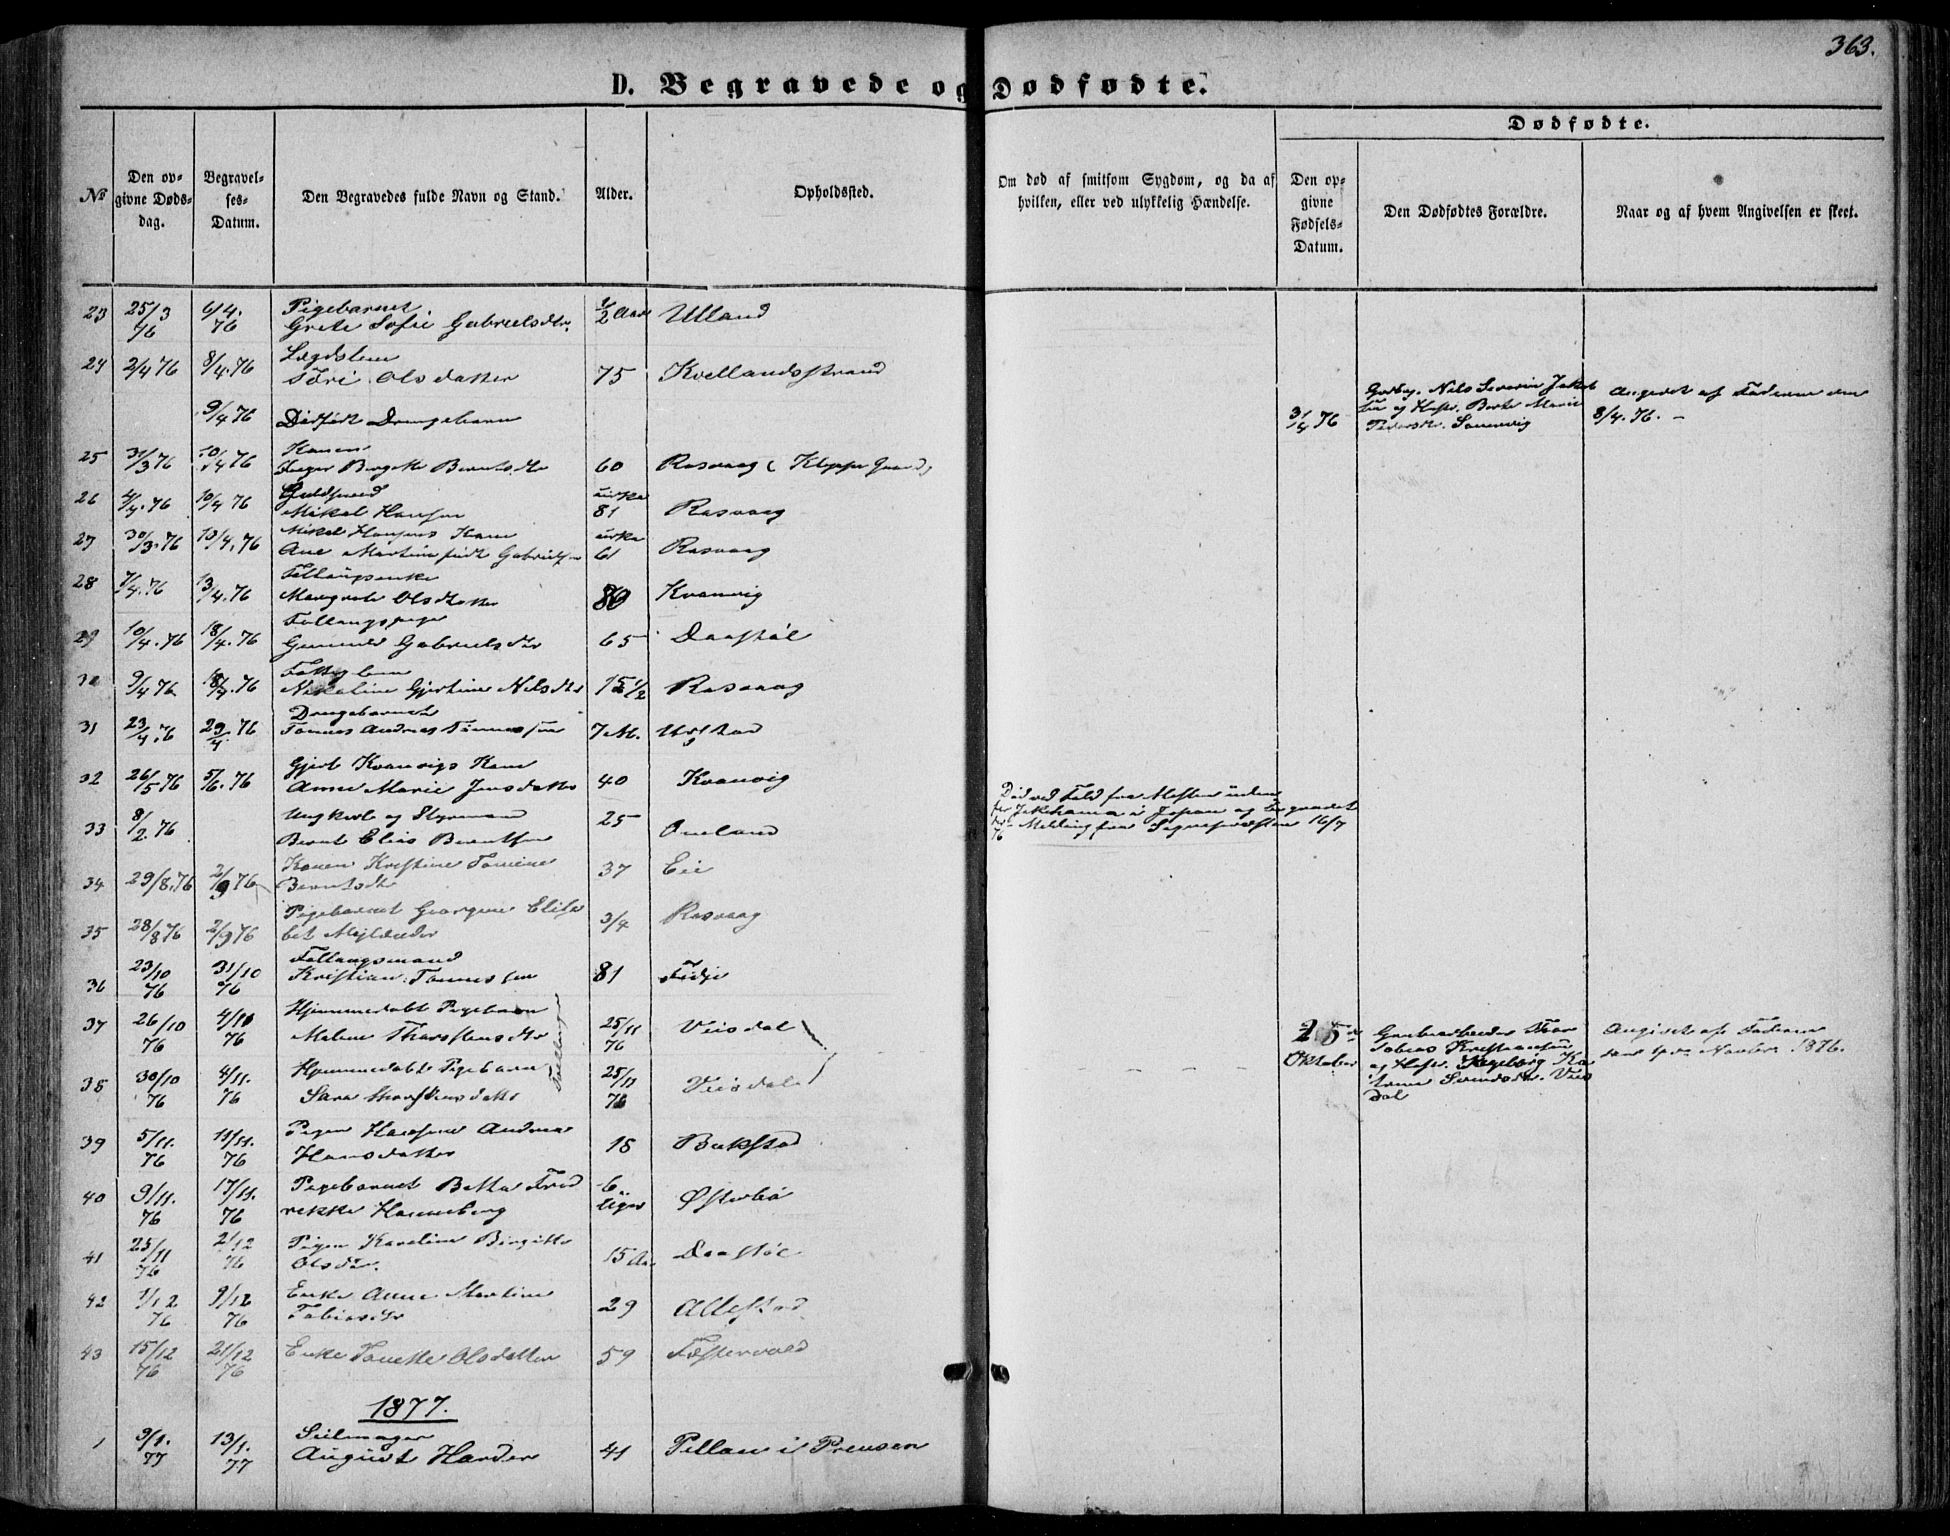 363.
D. Begravede og Dødfødte.
Dødfødte.
№
Den opgivne Dødsdag.
Begravelses-Datum.
Den Begravedes fulde Navn og Stand.
Alder.
Opholdssted.
Om død af smitsom Sygdom, og da af hvilken, eller ved ulykkelig Hændelse.
Den opgivne Fødsels-Datum.
Den Dødfødtes Forældre.
Naar og af hvem Angivelsen er skeet.
23 25/3 76 6/4. 76 Pigebarnet
Grete Sofie Gabrielsdtr. 1/2 Aar Ulland
24 2/4 76 8/4. 76 Lægdslem
Siri Olsdatter 75 Kvellandsstrand
9/4 76 Dødfødt Drengebarn 3/4 76 Nils Severin Jakob
sen og Hustr. Berte Marie
Pedersdtr. Angivet af Faderen den
8/4. 76. –
25 31/3 76 10/4 76 Konen
Birgitte Berntsdtr 60 Rasvaag (
26 4/4. 76 10/4 76 Guldsmed
Mikal Hansen cirka
81 Rasvaag
27 30/3. 76 10/4. 76 Mikal Hansens Kone
Ane Martine født Gabrielsen cirka
61 Rasvaag
28 7/4. 76 13/4. 76
Margrete Olsdatter 80 Kvanvig
29 10/4. 76 18/4. 76
Gunnild Gabrielsdtr 65 Daastøl
30 9/4 76 18/4. 76
Nikoline Gjertine Nilsdtr 75 1/2 Rasvaag
31 23/4. 76 29/4. 76 Drengebarnet
Tønnes Andreas Tønnessen 7 M. Urstad
32 26/5 76 5/6. 76 Gjert Kvanvigs Kone
Anne Marie Jensdatter 40 Kvanvig
33 8/2. 76 Ungkarl og Styrmand
Bernt Elias Berntsen 25 Omland
Død ved Fald fra Masten uden
for Jokohama i Japan og begravet
der – Melding fra Sognepræsten 16/7
76
34 29/8. 76 2/9 76 Konen Kristine Tomine
Berntsdtr 37 Eie
35 28/8 76 2/9 76 Pigebarnet Georgine Elisa
bet 3/4 Rasvaag
36 23/10 76 31/10 76
Kristian Tønnessen 81 Fidje
37 26/10 76 4/11 76 Hjemmedøbt Pigebarn
Malene Thorstensdtr 25/11
76 Veisdal
25de
Oktober
Tobias Kristiansen
og Hustr. Ingeborg Ka
trine Veis
dal
Angivet af Faderen
den 4de Novbr. 1876.
38 30/10 76 4/11. 76 Hjemmedøbt Pigebarn
Sara Thorstensdatter 25/11
76 Veisdal
39 5/11. 76 11/11. 76 Pigen Andrea
Hansdatter 18 Bukstad
40 9/11. 76 17/11. 76 Pigebarnet Betta Fred
rekke Hanneberg 6
Uger Østerbø
41 25/11 76 2/12 76 Pigen Karoline Birgitte
Olsdtr. 15 Aar Daastøl
42 1/12 76 9/12 76 Enke Anne Martine
Tobiasdtr 29 Allestad
43 15/12 76 21/12 76 Enke Olsdatter 59
1877.
1 3/1. 77 13/1. 77 Seilmager
August Harder 41 Pillau i Preusen